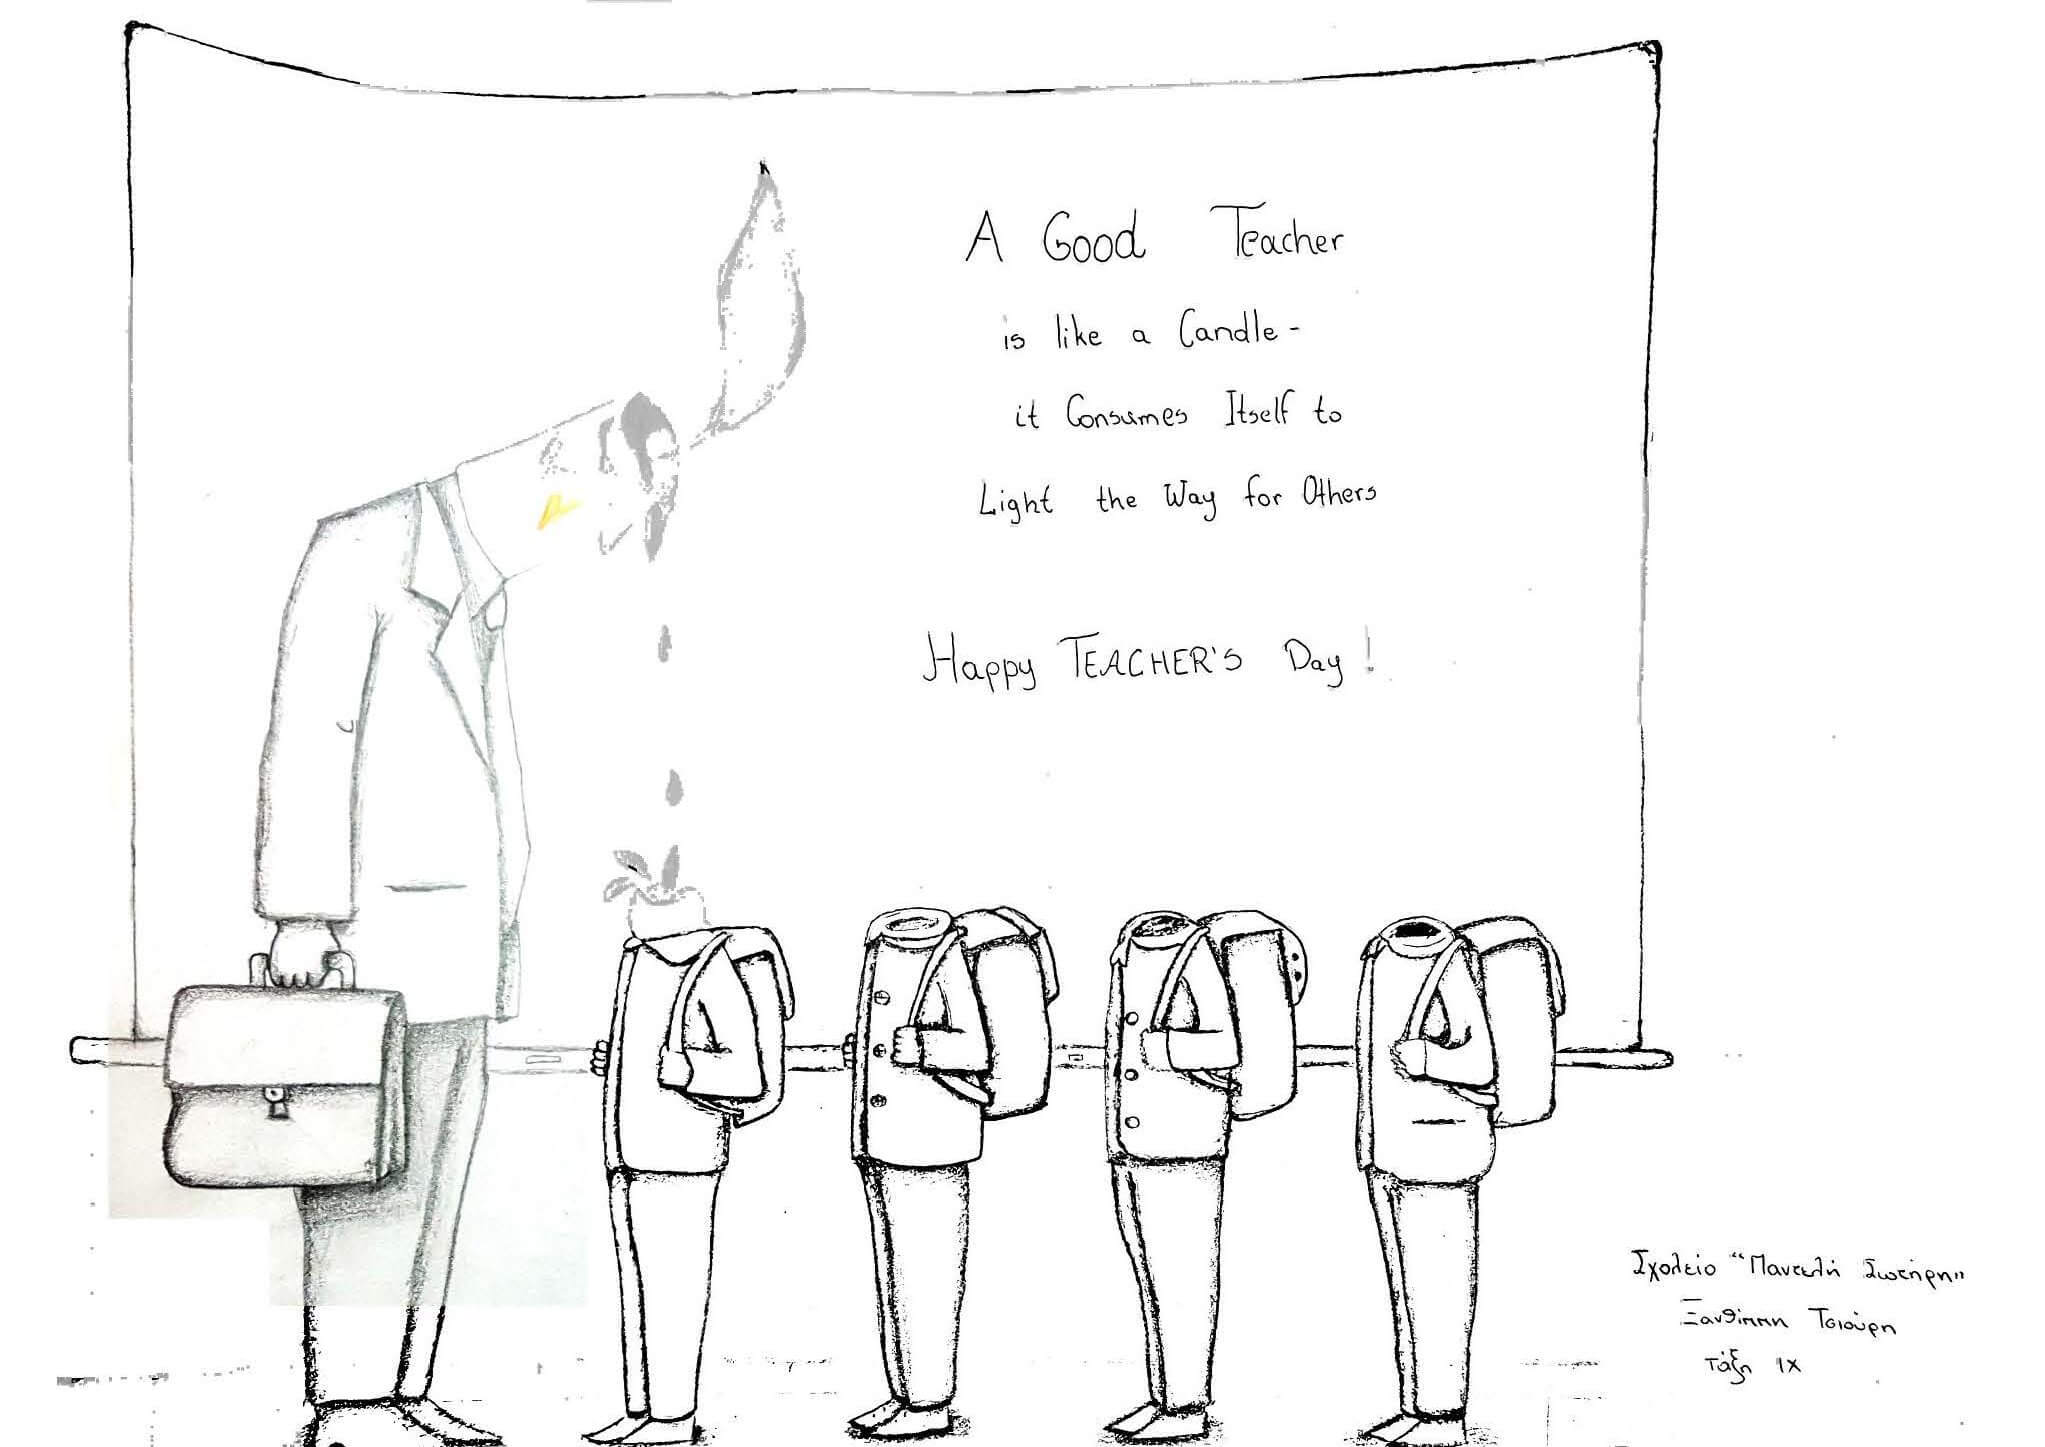 A Good Teacher
is like a Candle-
it Consumes Itself to
Light the Way for Others
Happy TEACHER'S Day!
Σχολείο "Παντελή Σωτήρη"
Ξανθίππη Τσιούρη
τάξη IX